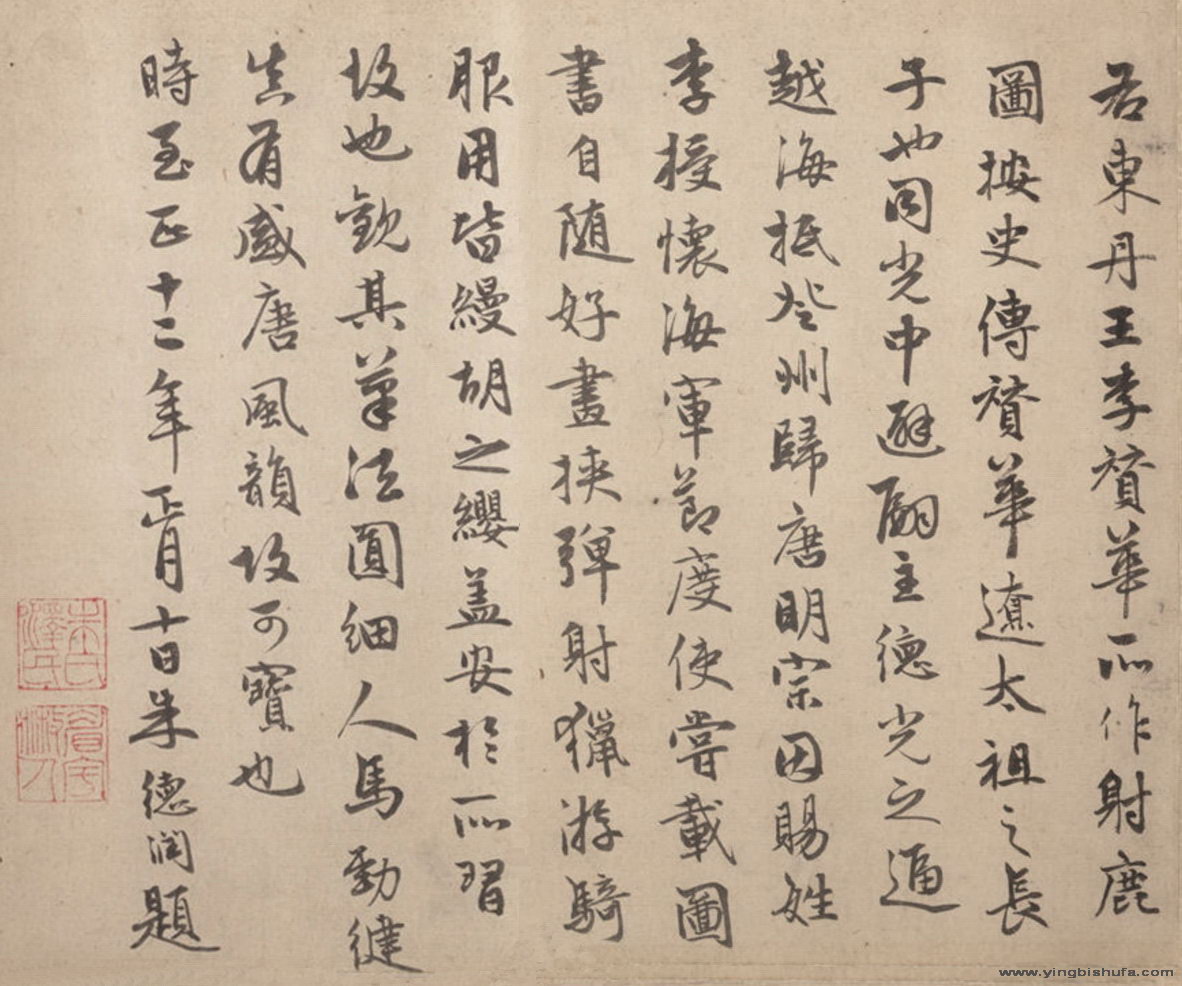 右東丹王李贊華所作射鹿
圖按史傳贊華遼太祖之長
子也同光中避嗣主德光之逼
越海抵登州歸唐明宗因賜姓
李授懷海軍節度使嘗載圖
書自随好畫挾彈射獵游騎
服用皆縵胡之纓盖安於所習
故也觀其筆法圓細人馬勁健
真有盛唐風韻故可寶也
時至正十二年正月十日朱德潤題
朱氏澤民
www.yingbishufa.com